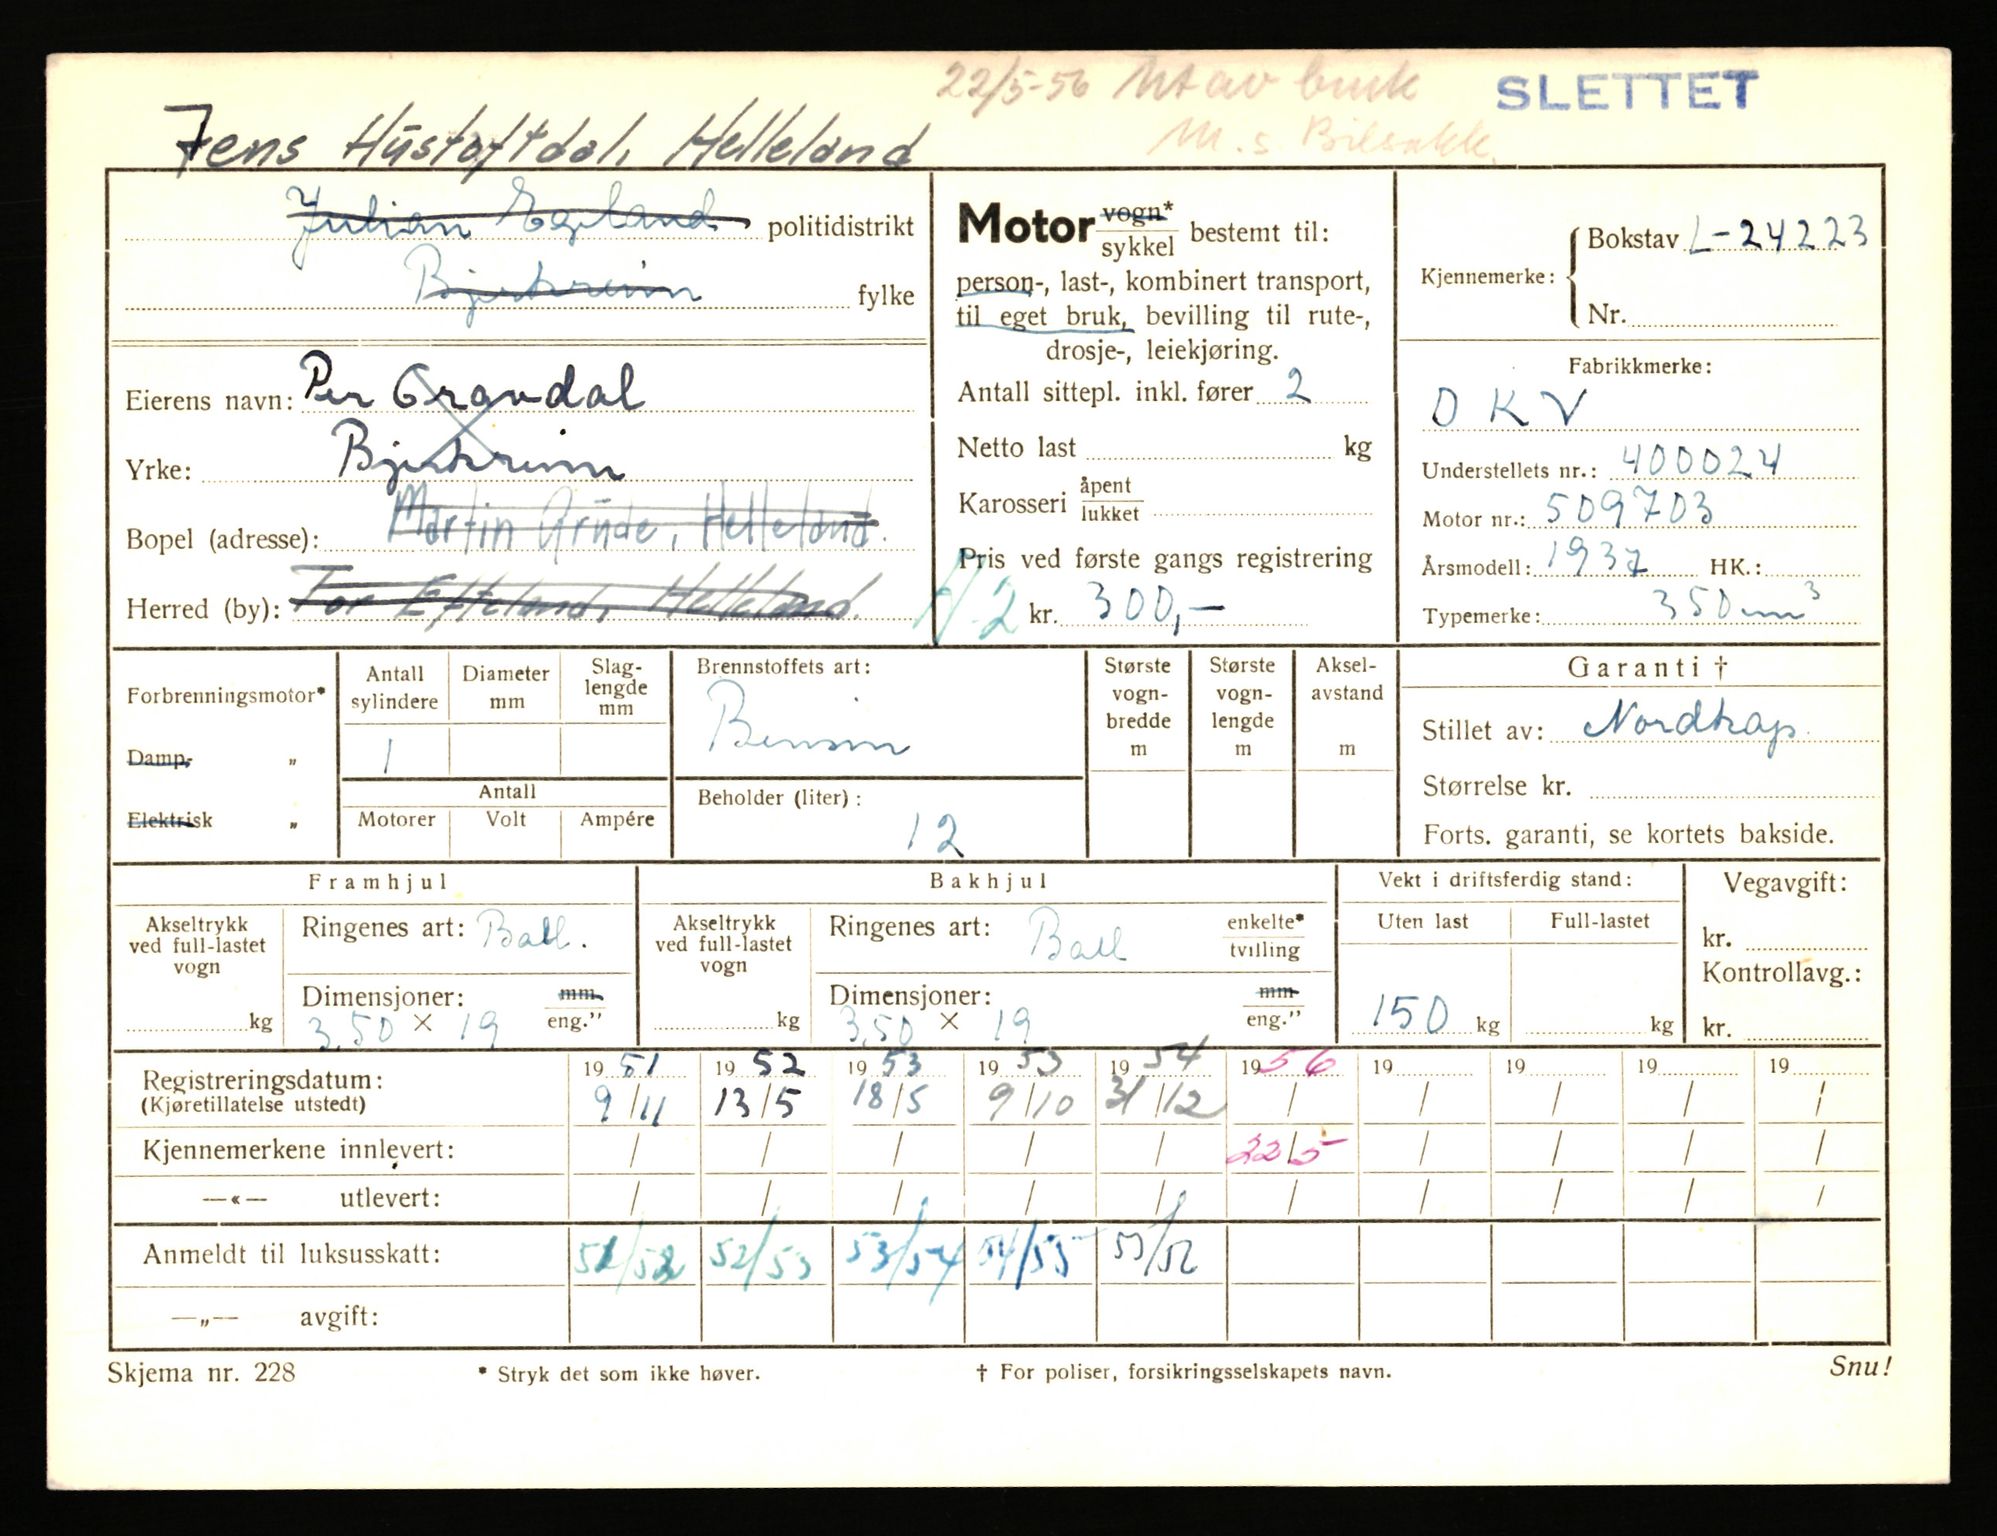 22/5-56 Ut av bruk
SLETTET
M.s Bilsakk.
Jens Hustoftdal, Helleland
Julian Egeland politidistrikt
Bjerkreim fylke
Eierens navn: Per Gravdal
Yrke: Bjerkreim
Bopel (adresse): Martin Grude, Helleland.
Herred (by): Tor Efteland, Helleland.
Motor vogn* / sykkel bestemt til:
person-, last-, kombinert transport,
til eget bruk, bevilling til rute-,
drosje-, leiekjøring.
Antall sittepl. inkl. fører 2
Netto last kg
Karosseri åpent / lukket
Pris ved første gangs registrering
kr. 300,-
Kjennemerke: Bokstav L-24223
Nr.
Fabrikkmerke:
DKV
Understellets nr.: 400024
Motor nr.: 509703
Årsmodell: 1937 HK.:
Typemerke: 350 cm³
Forbrenningsmotor*
Damp- „
Elektrisk „
Antall sylindere 1
Diameter mm
Slag-lengde mm
Antall
Motorer Volt Ampére
Brennstoffets art:
Bensin
Beholder (liter):
12
Største vogn-bredde m
Største vogn-lengde m
Aksel-avstand m
Garanti †
Stillet av: Nordkap
Størrelse kr.
Forts. garanti, se kortets bakside.
Framhjul
Akseltrykk ved full-lastet vogn kg
Ringenes art: Ball.
Dimensjoner: mm / eng."
3,50 × 19
Bakhjul
Akseltrykk ved full-lastet vogn kg
Ringenes art: Ball enkelte* / tvilling
Dimensjoner: mm / eng."
3,50 × 19
Vekt i driftsferdig stand:
Uten last Full-lastet
150 kg kg
Vegavgift:
kr.
Kontrollavg.:
kr.
1951 1952 1953 1953 1954 1956 19 19 19 19
Registreringsdatum:
(Kjøretillatelse utstedt) 9/11 13/5 18/5 9/10 31/12 / / / / /
Kjennemerkene innlevert: / / / / / 22/5 / / / /
—«— utlevert: / / / / / / / / / /
Anmeldt til luksusskatt: 52/53 53/54 54/55
—„— avgift:
Skjema nr. 228
* Stryk det som ikke høver.
† For poliser, forsikringsselskapets navn.
Snu!